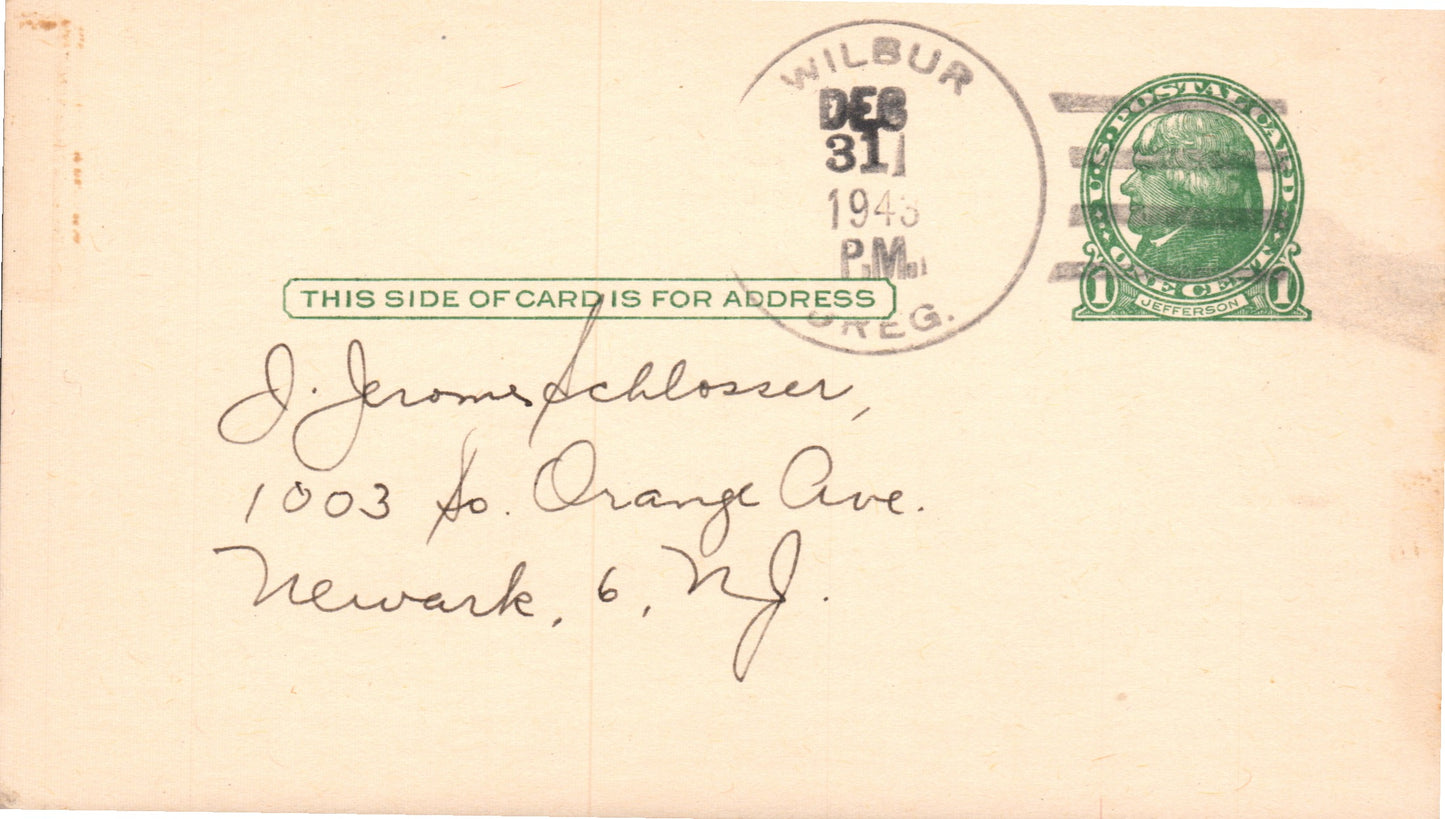 WILBUR
DEC
31
1943
P.M.
OREG.
U.S. POSTAL CARD
ONE CENT
1 JEFFERSON 1
THIS SIDE OF CARD IS FOR ADDRESS
J. Jerome Schlosser,
1003 So. Orange Ave.
Newark, 6, NJ.